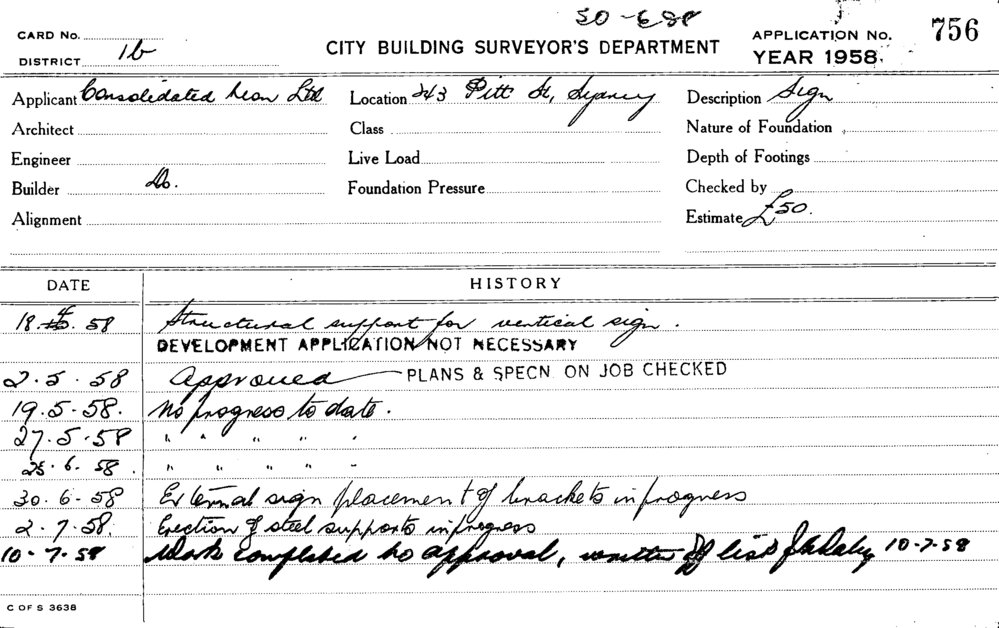 50-688
CARD No.
DISTRICT 1b
CITY BUILDING SURVEYOR'S DEPARTMENT
APPLICATION No. 756
YEAR 1958.
Applicant Consolidated Neon Ltd
Location 243 Pitt St, Sydney
Description Sign
Architect
Class
Nature of Foundation
Engineer
Live Load
Depth of Footings
Builder Do.
Foundation Pressure
Checked by
Alignment
Estimate £50.
DATE HISTORY
18.4.58 Structural support for vertical sign.
DEVELOPMENT APPLICATION NOT NECESSARY
2.5.58 Approved PLANS & SPECN. ON JOB CHECKED
19.5.58. No progress to date.
27.5.58 " " " " "
25.6.58. " " " " "
30.6.58 External sign placement of brackets in progress
2.7.58. Erection of steel supports in progress
10-7.58 Work completed to approval, written off list 10-7-58
C OF S 3638